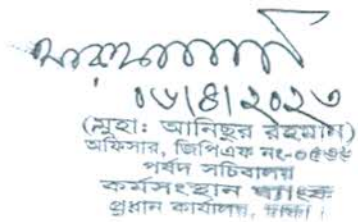 ০৬/৪/২০২৩
(মুহা: আনিছুর রহমান)
অফিসার, জিপিএফ নং-
পর্ষদ সচিবালয়
কর্মসংস্থান ব্যাংক
প্রধান কার্যালয়, ঢাকা।